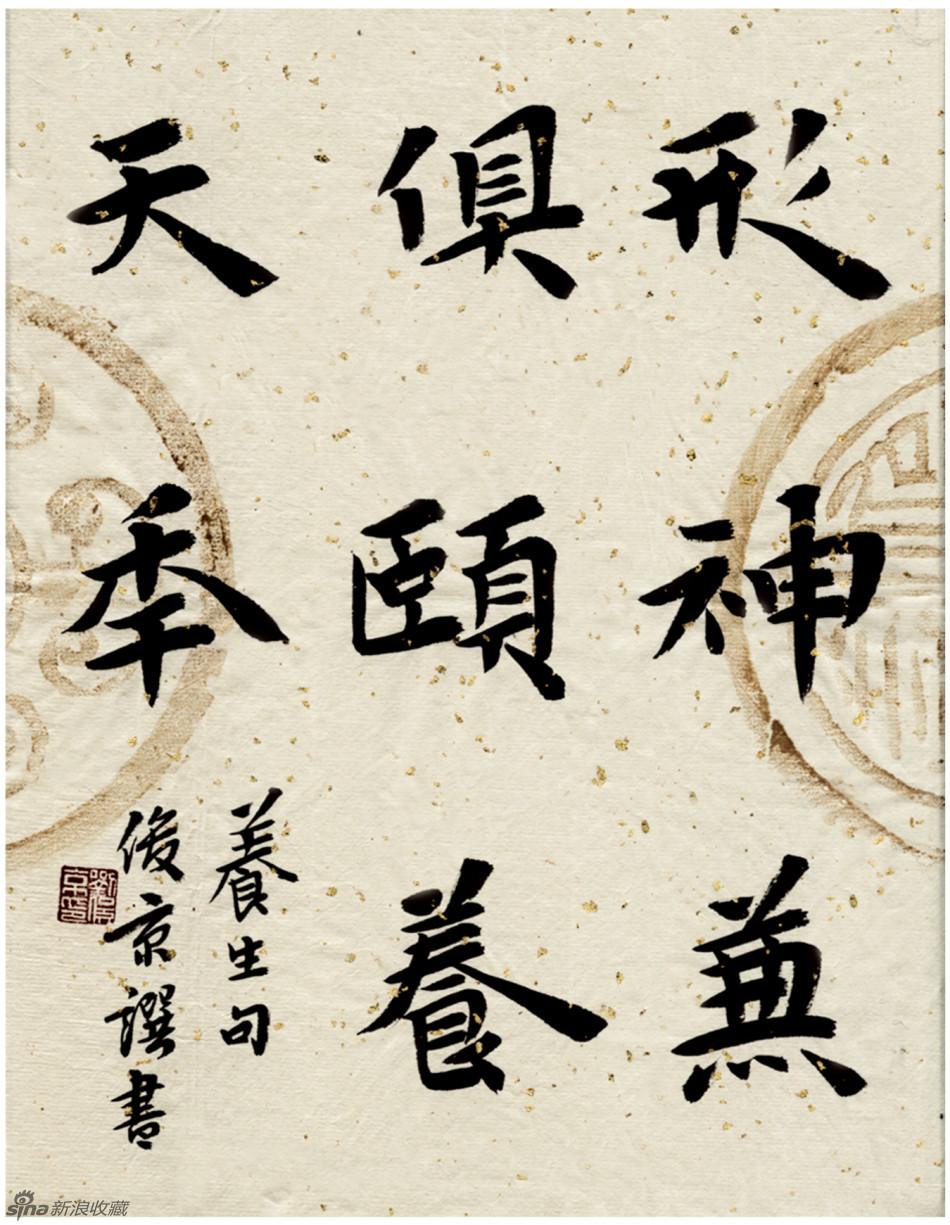 形神兼
俱頤養
天季
養生句
俊京譔書
劉俊京印
sina新浪收藏